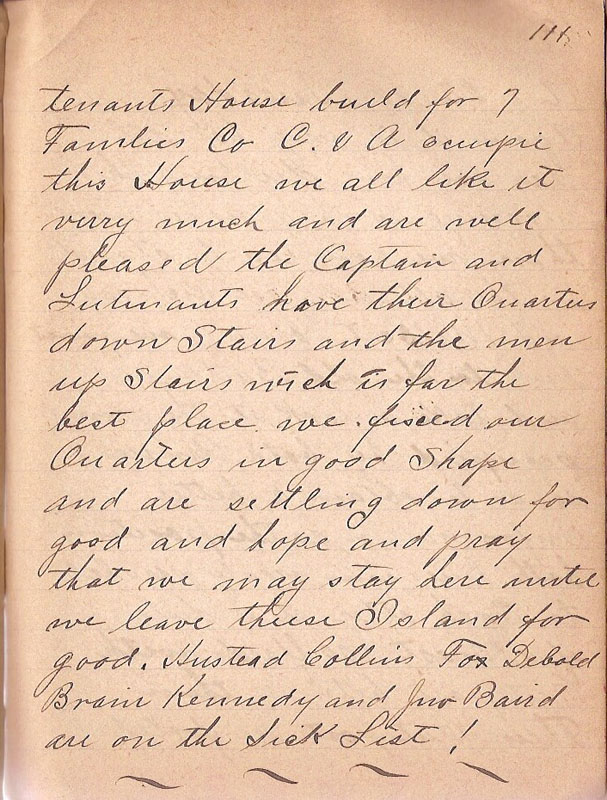 111.
tenants House build for 7
Families Co C. & A ocupie
this House we all like it
verry much and are well
pleased the Captain and
Lutenants have their Quarters
down Stairs and the men
up Stairs wich is far the
best place we fixced our
Quarters in good Shape
and are settling down for
good and hope and pray
that we may stay here until
we leave these Island for
good. Hustead Collins Fox Debold
Brain Kennedy and Jno Baird
are on the Sick List !